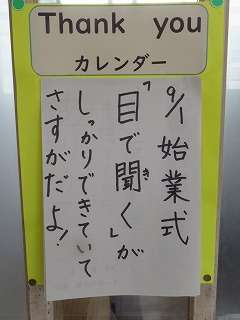 Thank you
カレンダー
9/1 始業式
「目で聞く」が
き
しっかりできていて
さすがだよ!